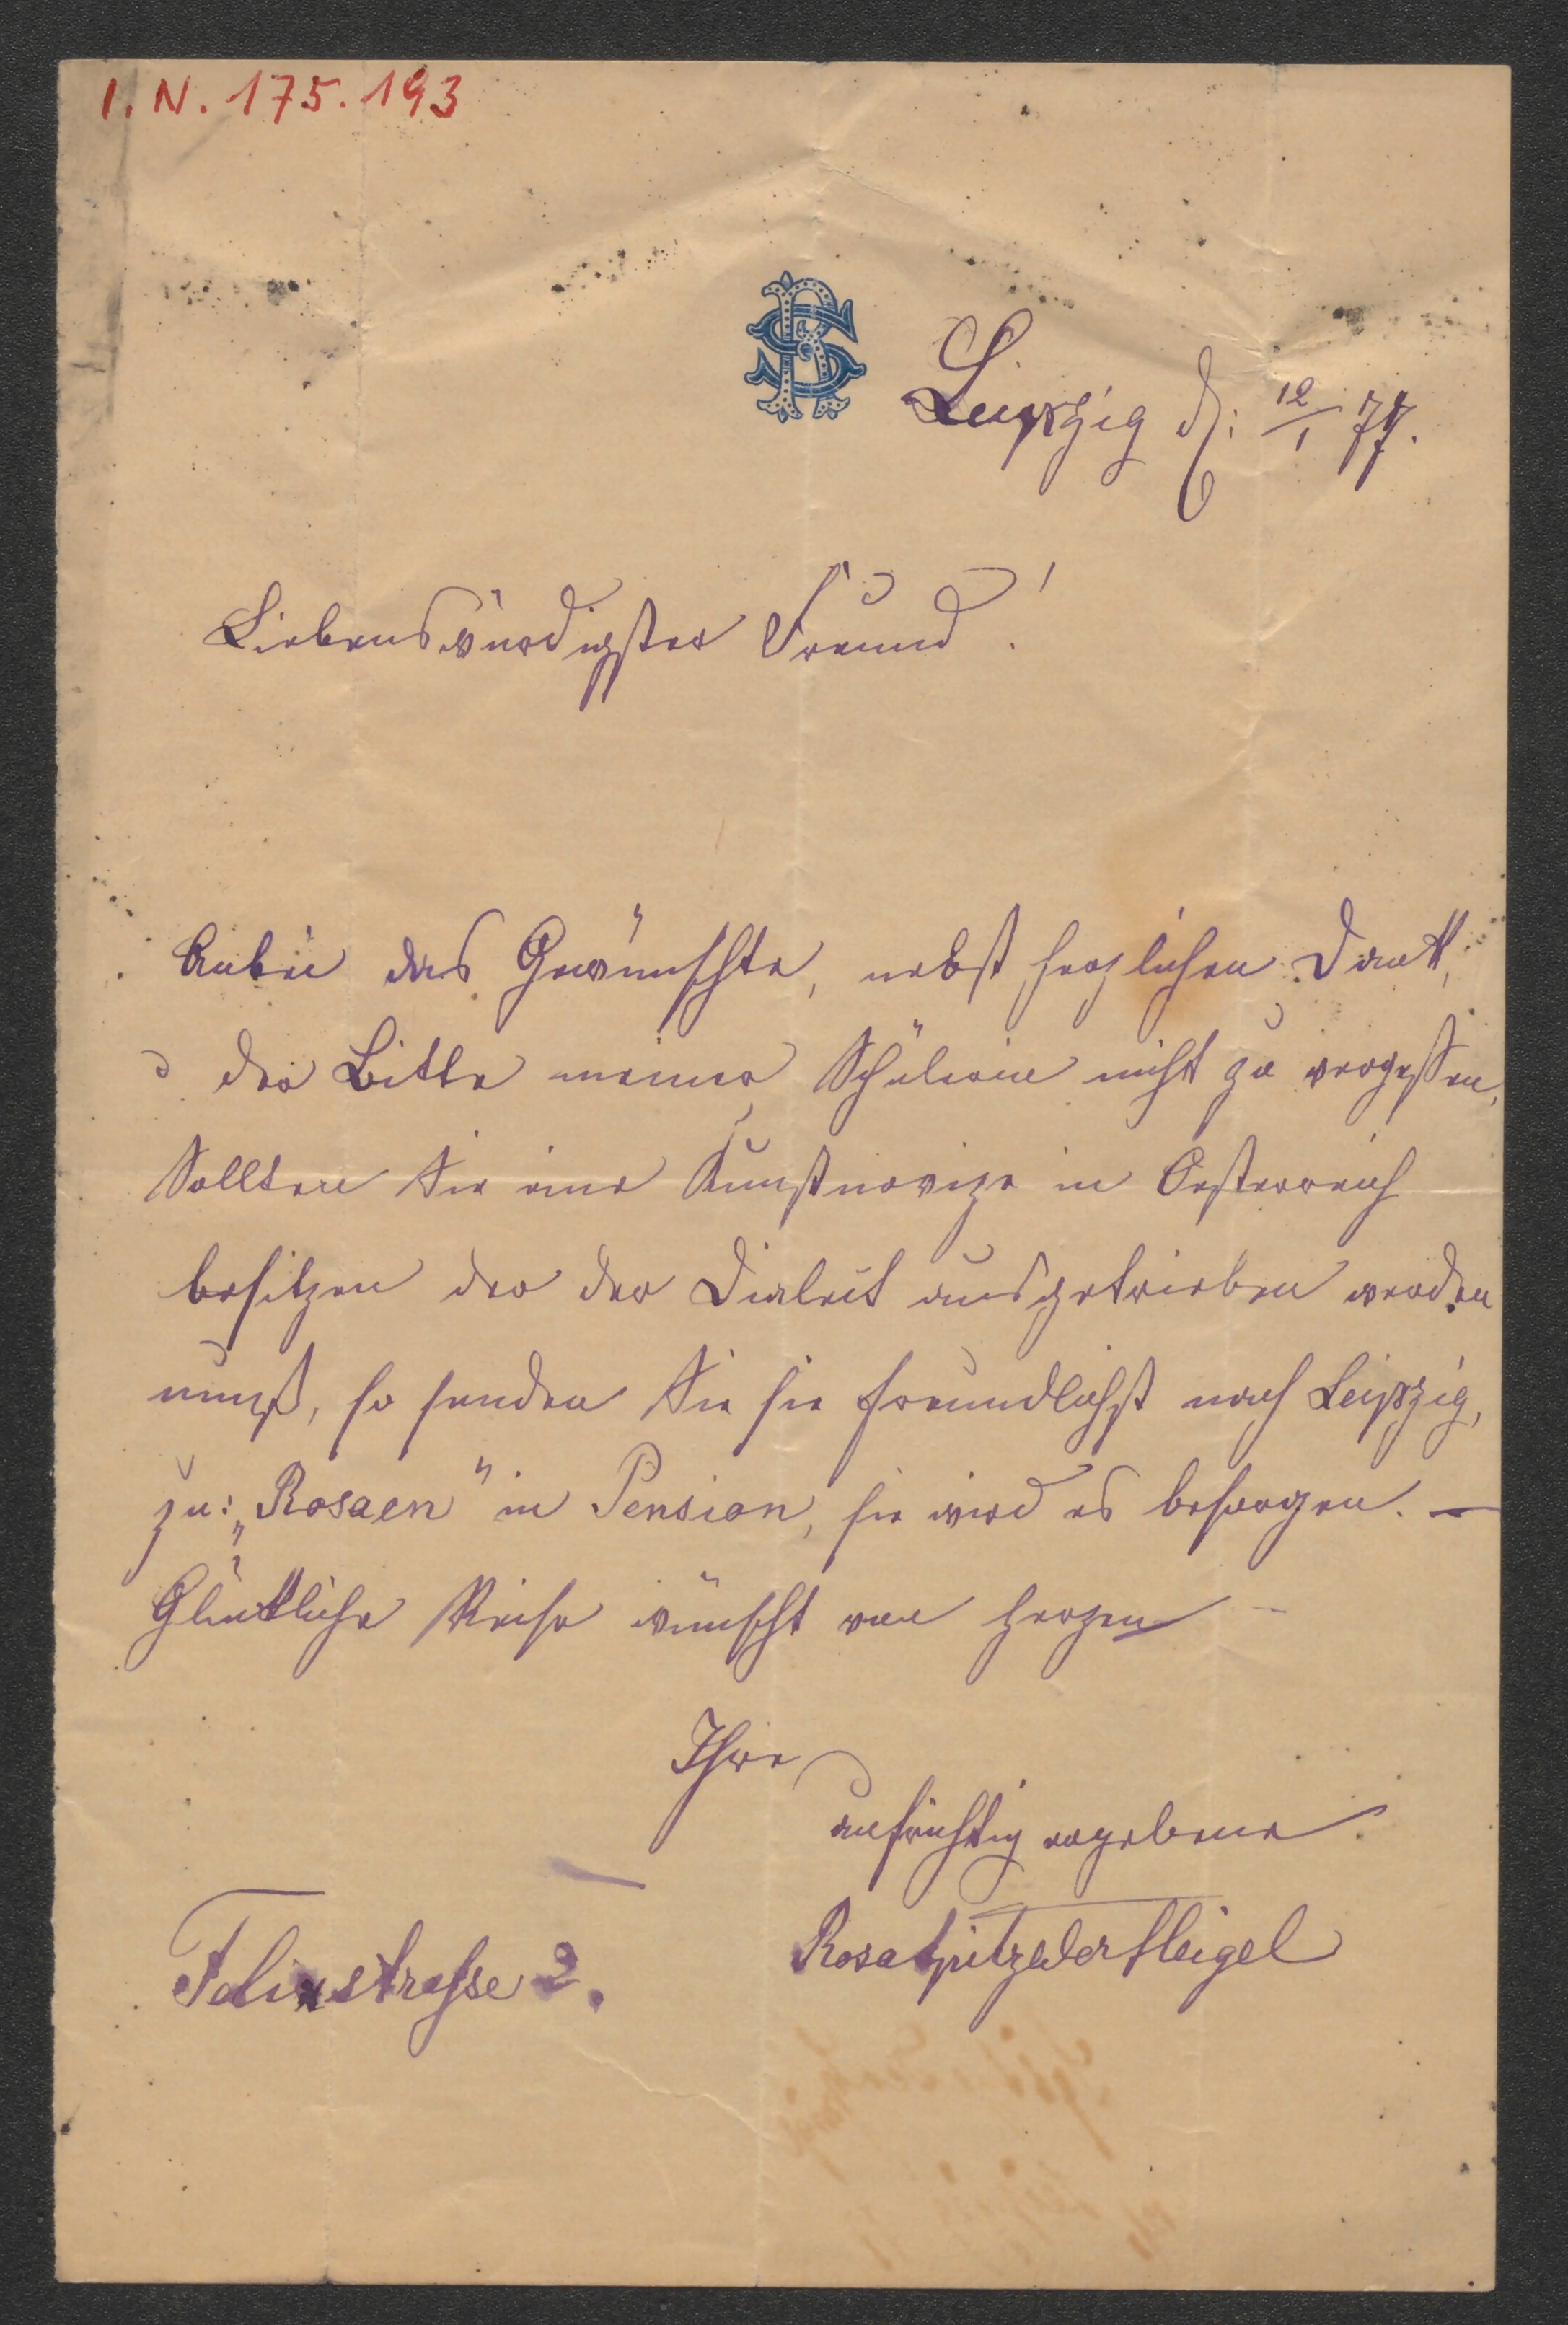 I. N. 175.193
RS
Leipzig d: 12/1 77.
Liebenswürdigster Freund!
Anbei das Gewünschte, nebst herzlichen Dank,
u der Bitte meiner Schülerin nicht zu vergessen,
Sollten Sie eine Kunstnovize in Oesterreich
besitzen der der Dialect ausgetrieben werden
muß, so senden Sie sie freundlichst nach Leipzig,
zu: „Rosaen" in Pension, sie wird es besorgen. —
Glückliche Reise wünscht von Herzen
Ihre
aufrichtig ergebene
Rosa Spitzeder Heigel
Felixstrasse 2.